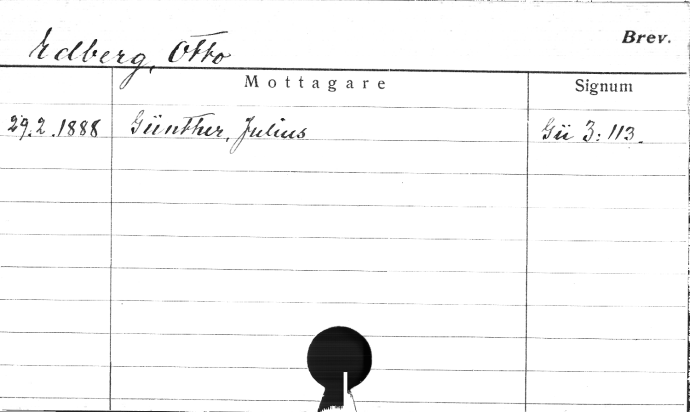 Edberg, Otto
Brev.
Mottagare
Signum
29.2.1888 Günther, Julius Gü 3:113.